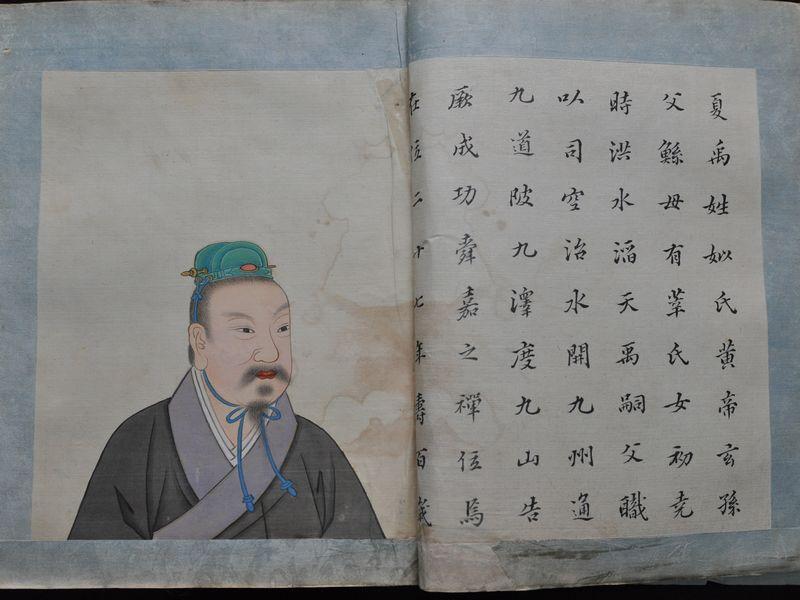 夏禹姓姒氏黄帝玄孫
父鯀母有莘氏女初堯
時洪水滔天禹嗣父職
以司空治水開九州通
九道陂九澤度九山告
厥成功舜嘉之禪位焉
在位二十七年壽百歲